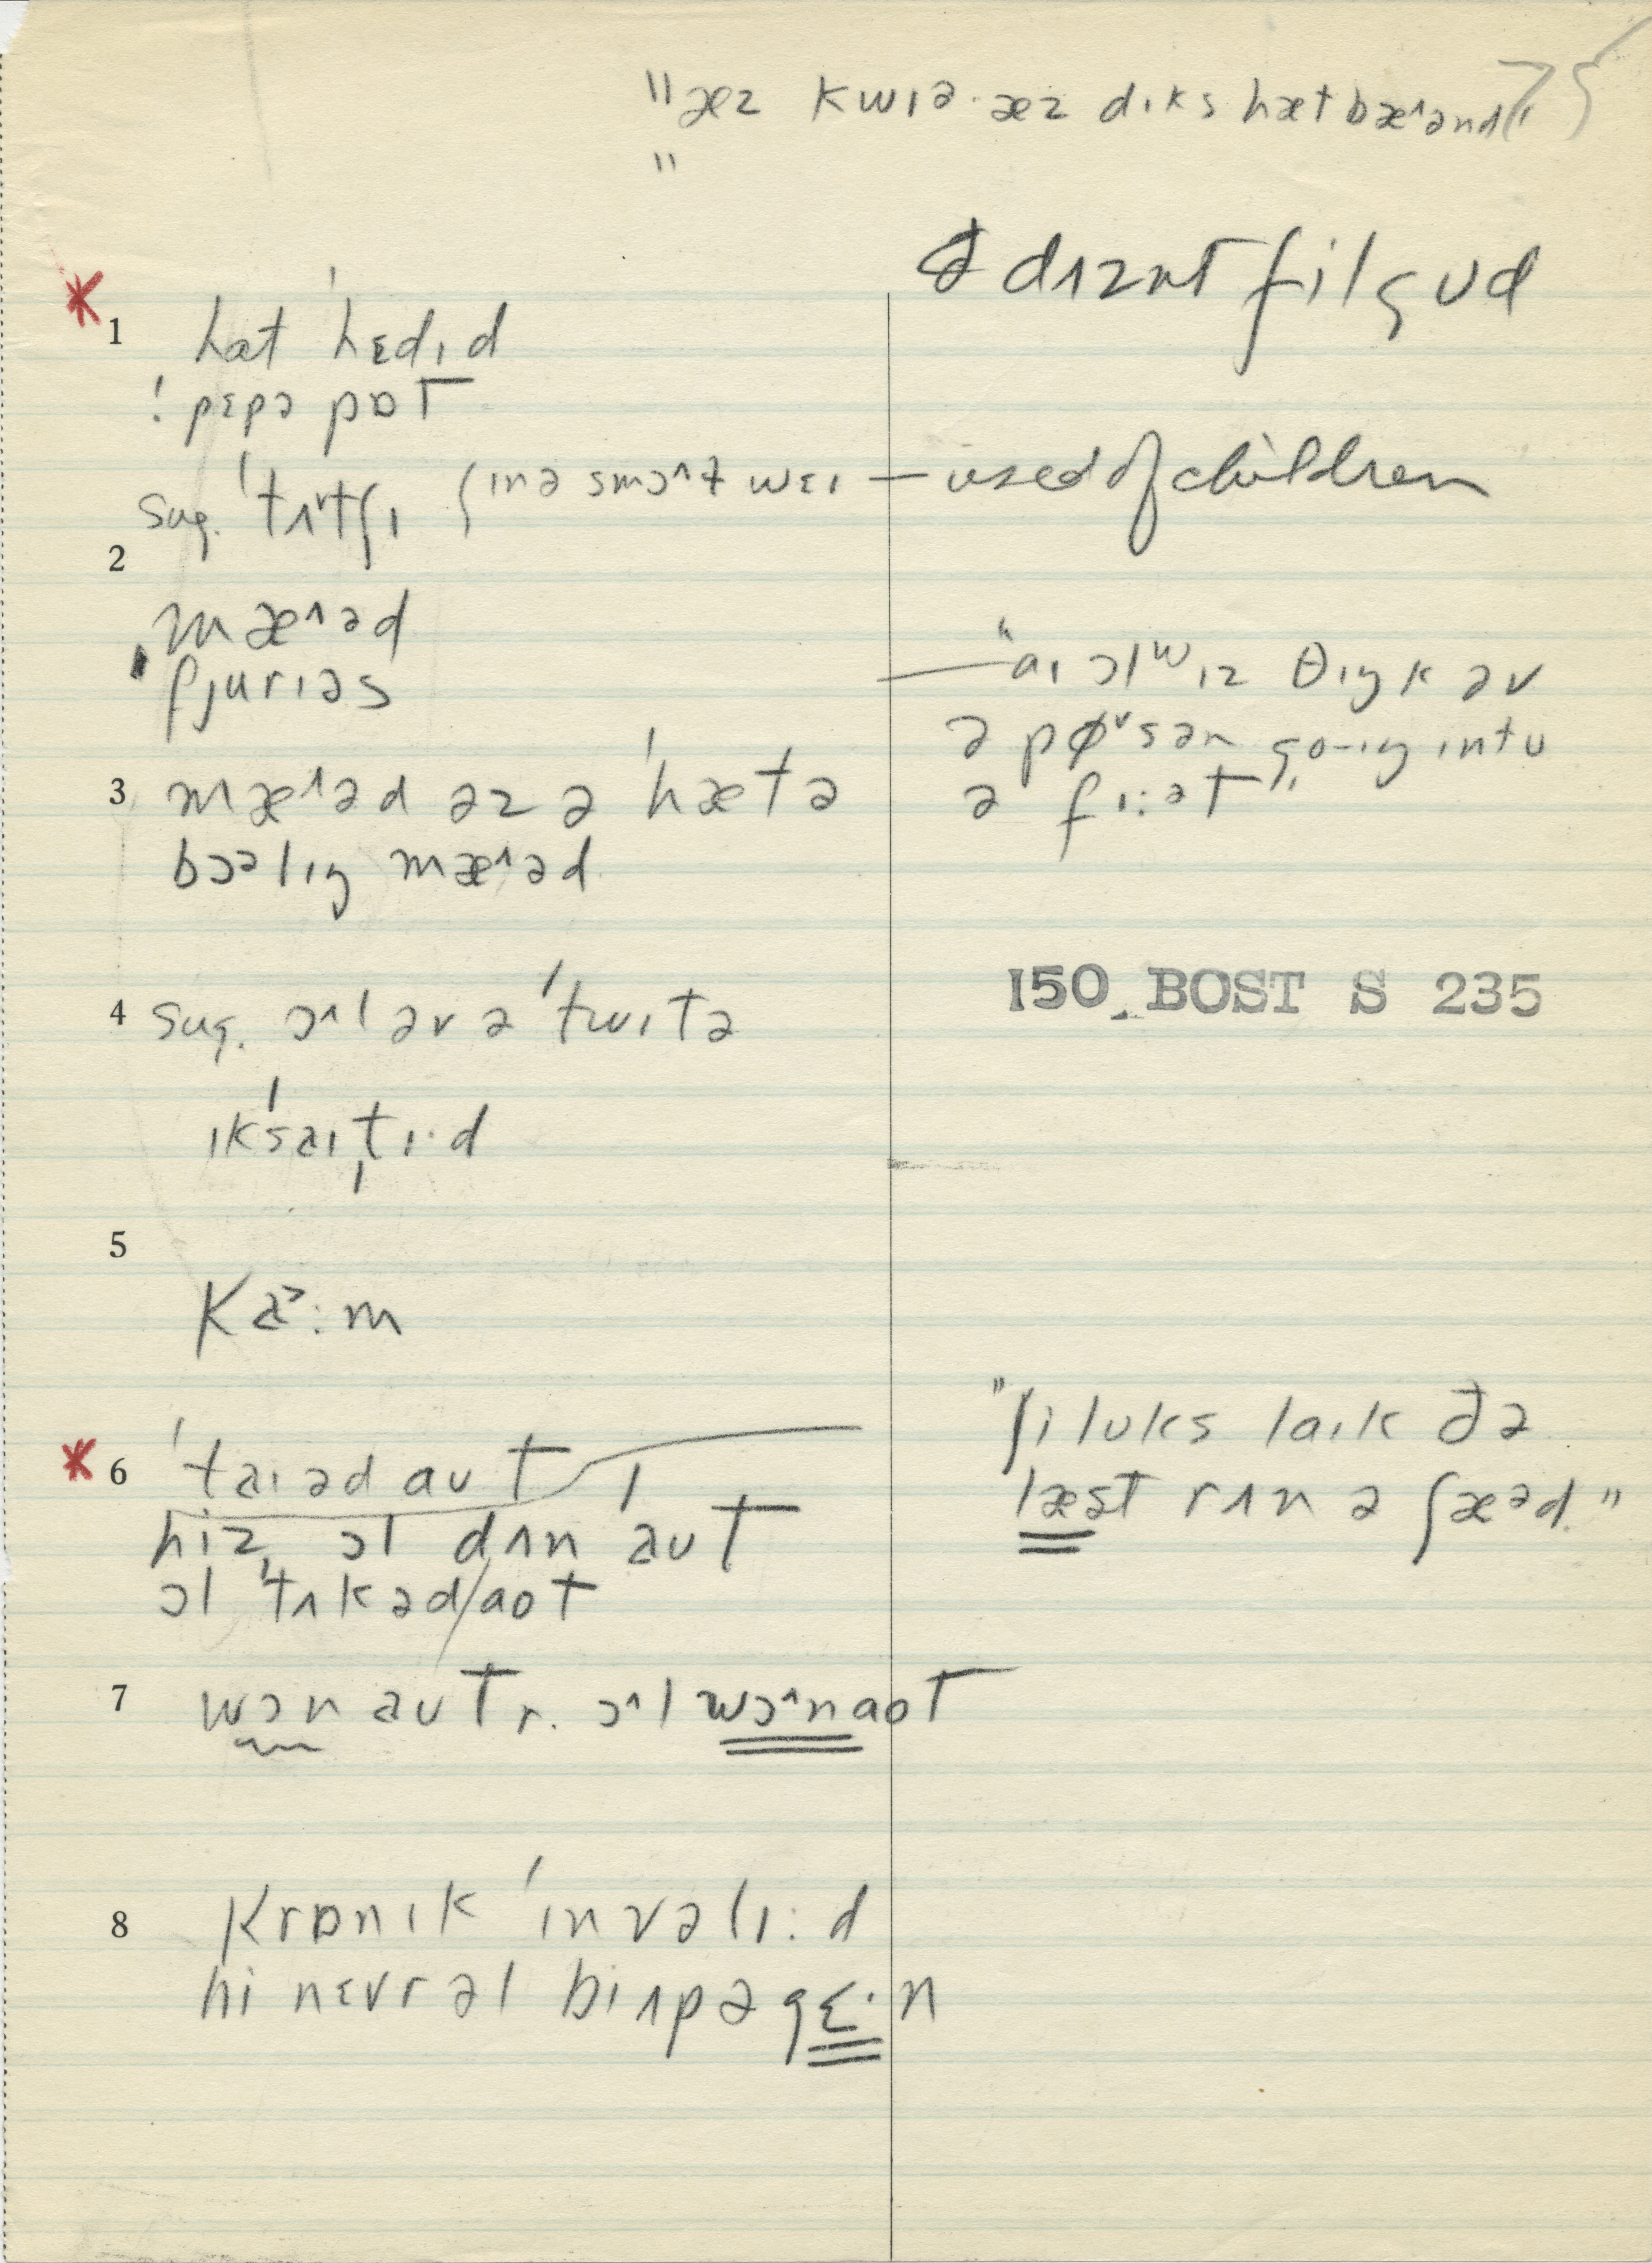 "æz kwɪə· æz dɪks hætbæ^ənd" 75
"
ə dʌznt fil gʊd
1 hat ˈhɛdɪd
! pɛpə pɒt
sug. ˈtʌtʃɪ (ɪn ə smɔ^t wɛɪ — used of children
2
mæ^əd
fjurɪəs — "aɪ ɔlwɪz θɪŋk əv
ə pøʳsən go-ɪŋ ɪntu
ə fɪ:ət"
3 mæ^əd əz ə ˈhætə
bɔəlɪŋ mæ^əd
4 sug. ɔ^l əv ə ˈtwɪtə
ɪkˈsaɪtɪ·d
150 BOST S 235
5
ka>:m
6 ˈtaɪəd aʊt
hiz ɔl dʌn ˈaʊt
ɔl ˈtʌkəd/aot
"ʃi lʊks laɪk ðə
læst rʌn ə ʃæəd."
7 wɔn aʊt r. ɔ^l wɔ^naot
8 krɒnɪk ˈɪnvəlɪ:d
hi nɛvr əl bi ʌp əgɛ·n